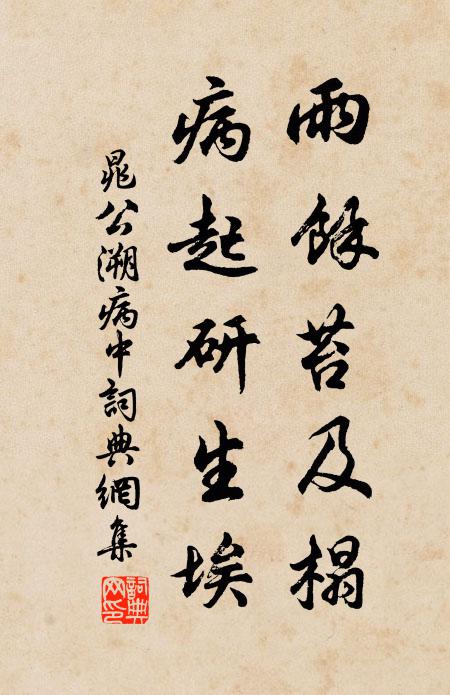 雨餘苔及榻
病起研生埃
晁公溯病中詞典網集
詞典網印